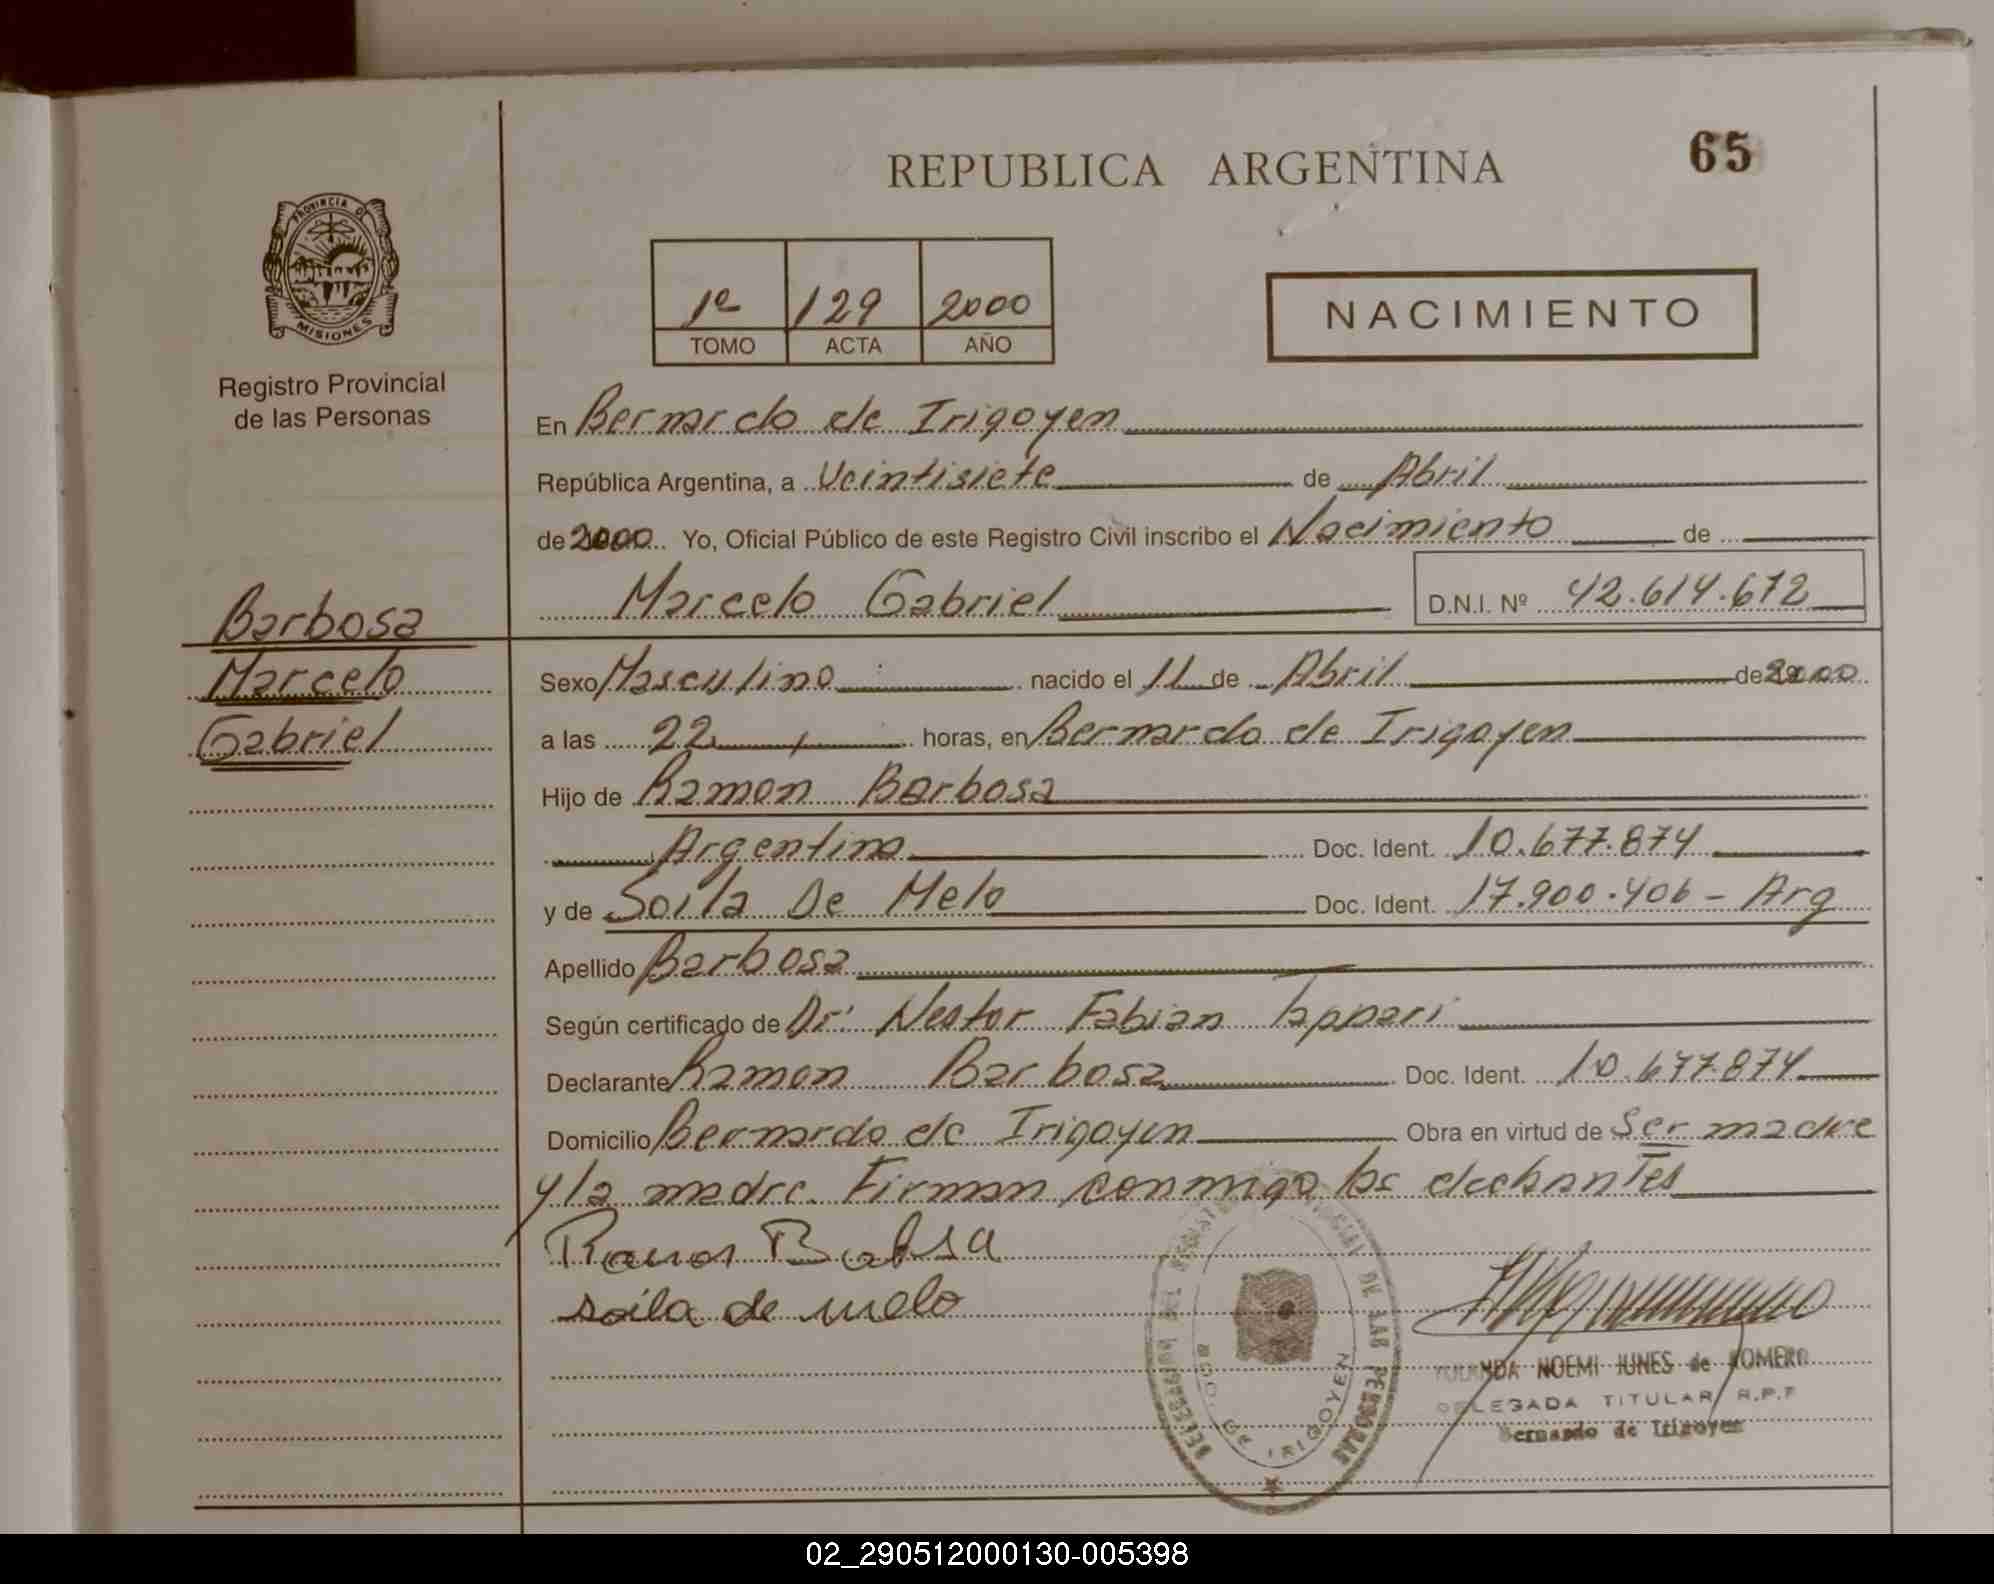 REPUBLICA ARGENTINA
65
PROVINCIA DE
MISIONES
Registro Provincial
de las Personas
1º 129 2000
TOMO ACTA AÑO
NACIMIENTO
En Bernardo de Irigoyen
República Argentina, a Veintisiete de Abril
de 2000 Yo, Oficial Público de este Registro Civil inscribo el Nacimiento de
Marcelo Gabriel D.N.I. Nº 42.614.672
Barbosa
Marcelo
Gabriel
Sexo Masculino nacido el 11 de Abril de 2000
a las 22 horas, en Bernardo de Irigoyen
Hijo de Ramon Barbosa
Argentino Doc. Ident. 10.677.874
y de Soila De Melo Doc. Ident. 17.900.406 - Arg
Apellido Barbosa
Según certificado de Dr. Nestor Fabian Tappari
Declarante Ramon Barbosa Doc. Ident. 10.677.874
Domicilio Bernardo de Irigoyen Obra en virtud de Ser madre
y la madre. Firman conmigo los
soila de melo
DE LAS PERSONAS
BDO. DE IRIGOYEN
YOLANDA NOEMI JUNES de ROMERO
DELEGADA TITULAR R.P.P
Bernardo de Irigoyen
02_290512000130-005398